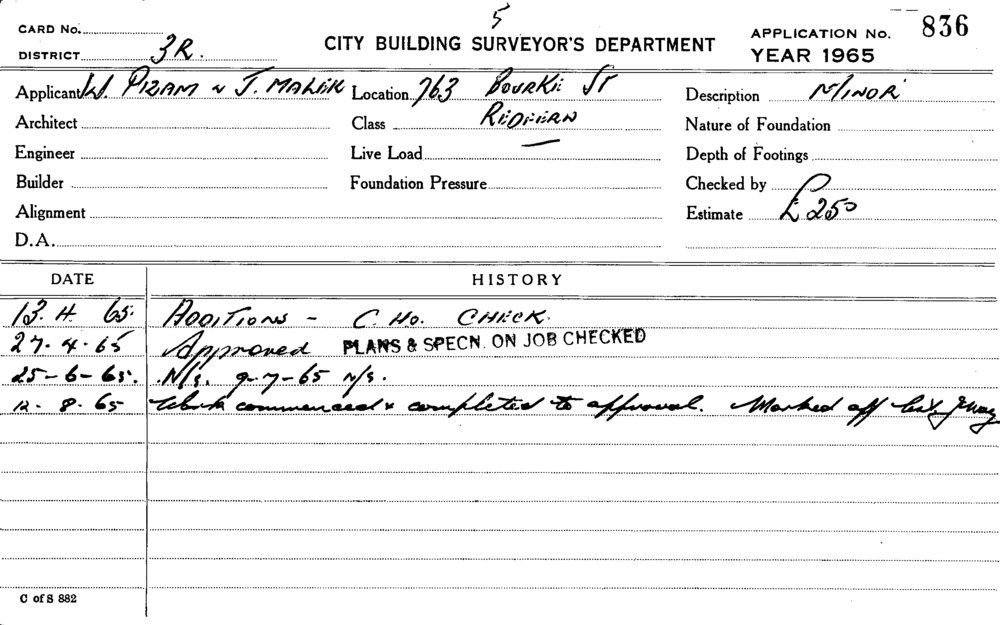 5
CARD No.
DISTRICT 3R.
CITY BUILDING SURVEYOR'S DEPARTMENT
APPLICATION No. 836
YEAR 1965
Applicant W. PIZAM & J. MALIK Location 763 BOURKE ST Description MINOR
Architect Class REDFERN Nature of Foundation
Engineer Live Load — Depth of Footings
Builder Foundation Pressure Checked by
Alignment Estimate £250
D.A.
DATE HISTORY
13. 4. 65. ADDITIONS - C. HO. CHECK.
27. 4. 65 Approved PLANS & SPECN. ON JOB CHECKED
25-6-65. N/s. 9-7-65 N/s.
12. 8. 65 Work commenced & completed to approval. Marked off
C of S 882